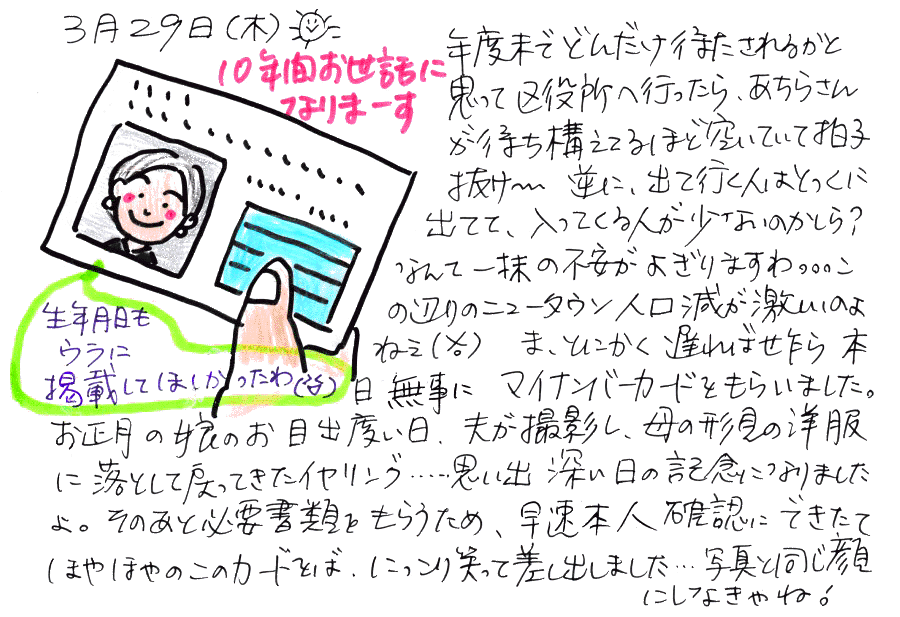 3月29日(木)
10年間お世話に
なりまーす
年度末でどんだけ待たされるかと
思って区役所へ行ったら、あちらさん
が待ち構えてるほど空いていて拍子
抜け〜 逆に、出て行く人はとっくに
出てて、入ってくる人が少ないのかしら?
なんて一抹の不安がよぎりますわ。。。こ
の辺りのニュータウン人口減が激しいのよ
ねぇ(笑) ま、とにかく遅ればせながら本
日無事にマイナンバーカードをもらいました。
生年月日も
ウラに
掲載してほしかったわ(笑)
お正月の娘のお目出度い日、夫が撮影し、母の形見の洋服
に落として戻ってきたイヤリング……思い出深い日の記念になりました
よ。そのあと必要書類をもらうため、早速本人確認にできたて
ほやほやのこのカードをば、にっこり笑って差し出しました…写真と同じ顔
にしなきゃね!